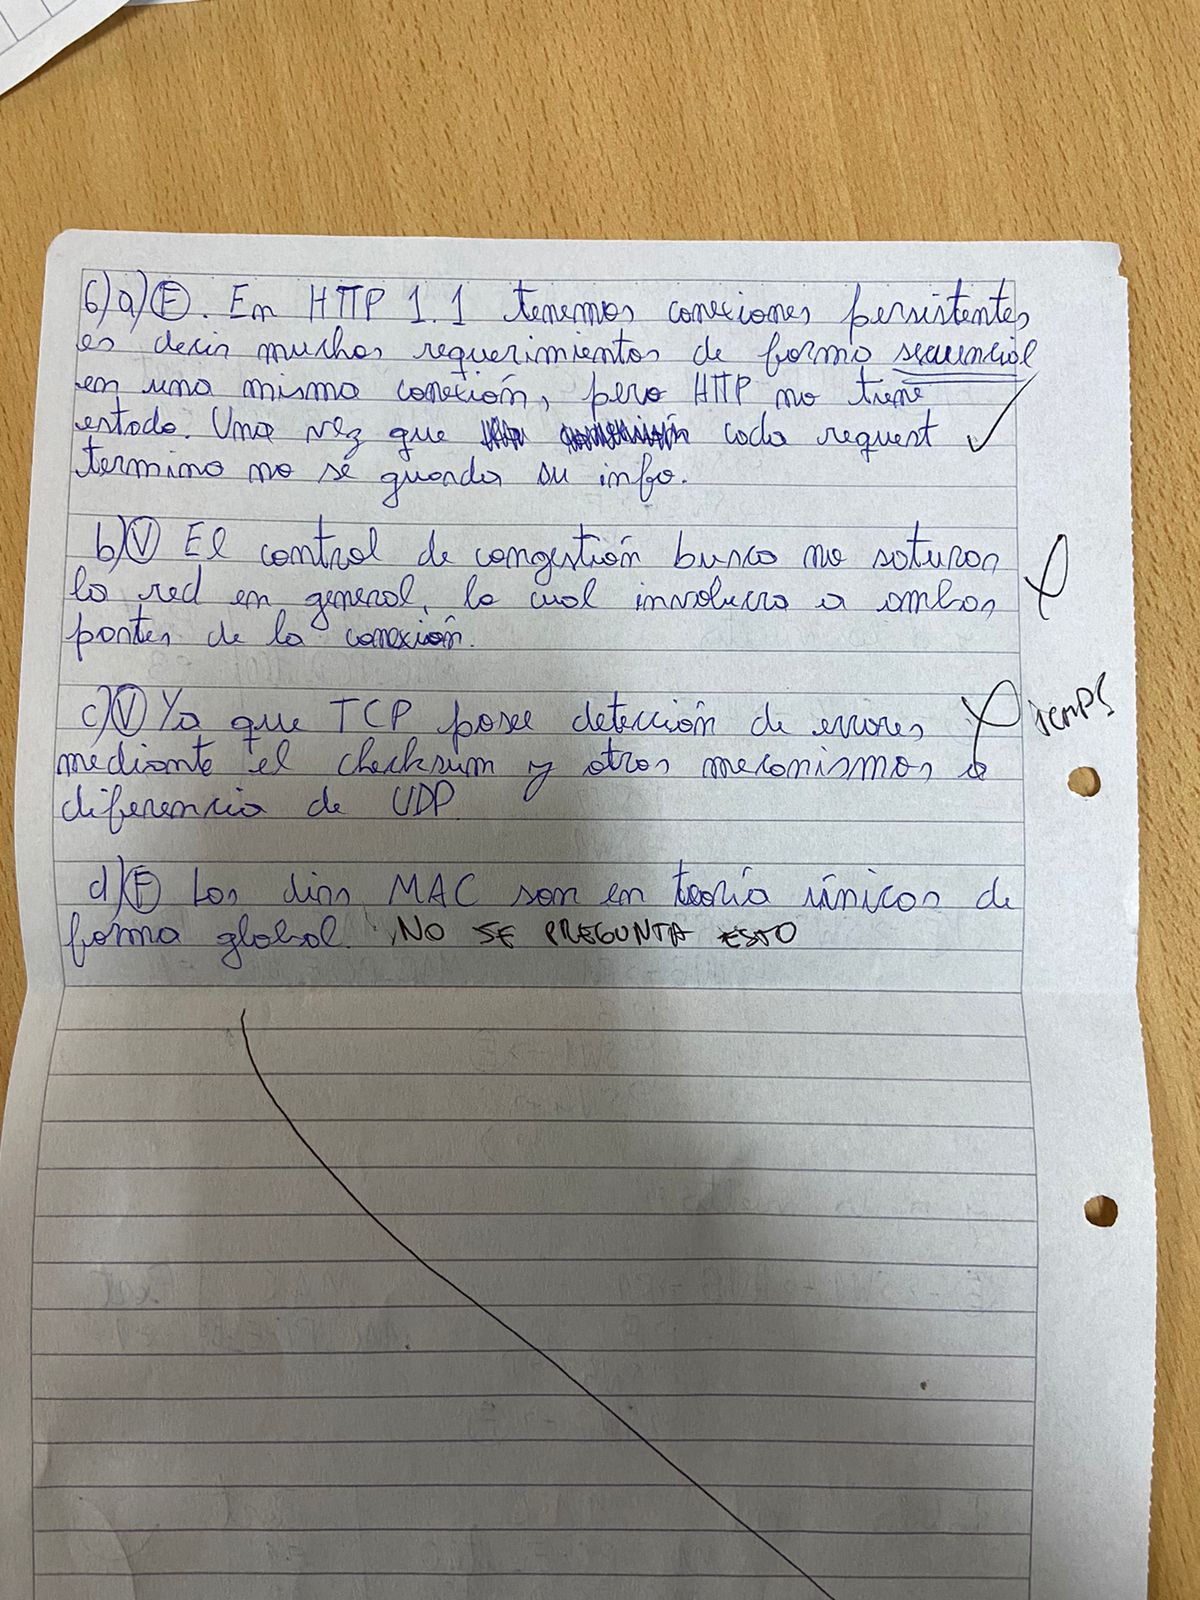 6) a) F. En HTTP 1.1 tenemos conexiones persistentes,
es decir muchos requerimientos de forma secuencial
en una misma conexión, pero HTTP no tiene
estado. Una vez que cada request
termina no se guarda su info.
b) V El control de congestión busca no saturar
la red en general, lo cual involucra a ambas
partes de la conexión.
c) V Ya que TCP posee detección de errores
mediante el checksum y otros mecanismos a
diferencia de UDP.
d) F Las dirs MAC son en teoría únicas de
forma global. NO SE PREGUNTA ESTO